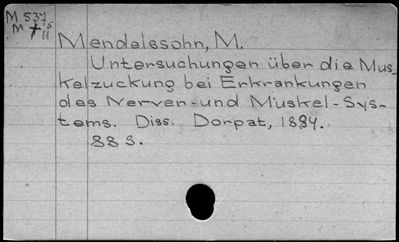 M 537
M
Mendelssohn, M.
Untersuchungen über die Mus-
kelzuckung bei Erkrankungen
des Nerven- und Muskel-Sys-
tems. Diss. Dorpat, 1884.
88 S.